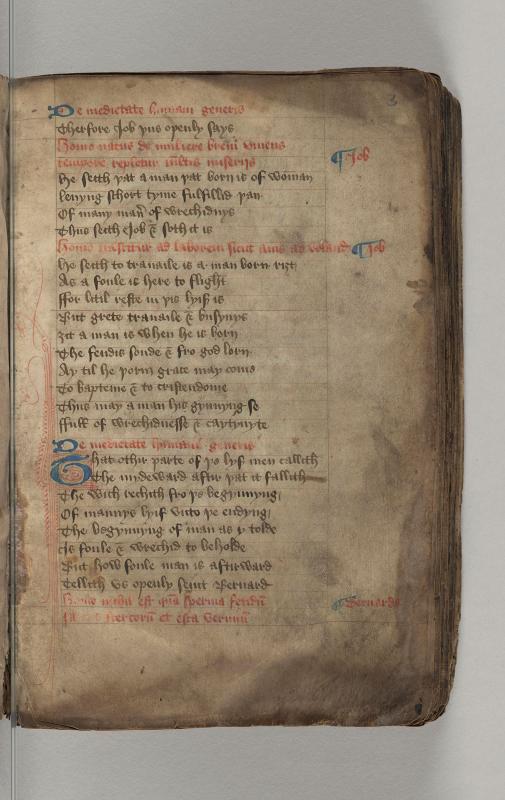 3
De medietate humani generis
Therfore Job þus openly says
Homo natus de muliere breui viuens
tempore repletur multis miserijs
¶ Job
He seith þat a man þat born is of woman
leuyng schort tyme fulfillid þan
Of many maner of wrechidnys
Thus seith Job & soth it is
Homo nascitur ad laborem sicut auis ad volandum ¶ Job
He seith to trauaile is a man born riȝt
As a foule is here to flight
ffor litil reste in þis lyif is
But grete trauaile & busynys
ȝit a man is when he is born
The fendis sonde & fro god lorn
Ay til he þorw grace may come
To bapteme & to cristendome
Thus may a man his gynnyng se
ffull of wrechidnesse & caytyuyte
De medietate humani generis
That othir parte of þo lyf men callith
The mydeward aftir þat it fallith
The wich rechith fro þe begynnyng
Of mannys lyif vnto þe endyng
The begynnyng of man as y tolde
Is foule & wrechid to beholde
But how foule man is aftirward
Tellith vs openly seint Bernard
Homo nichil est quam sperma fetidum ¶ Bernardus
stercorum et esca vermium